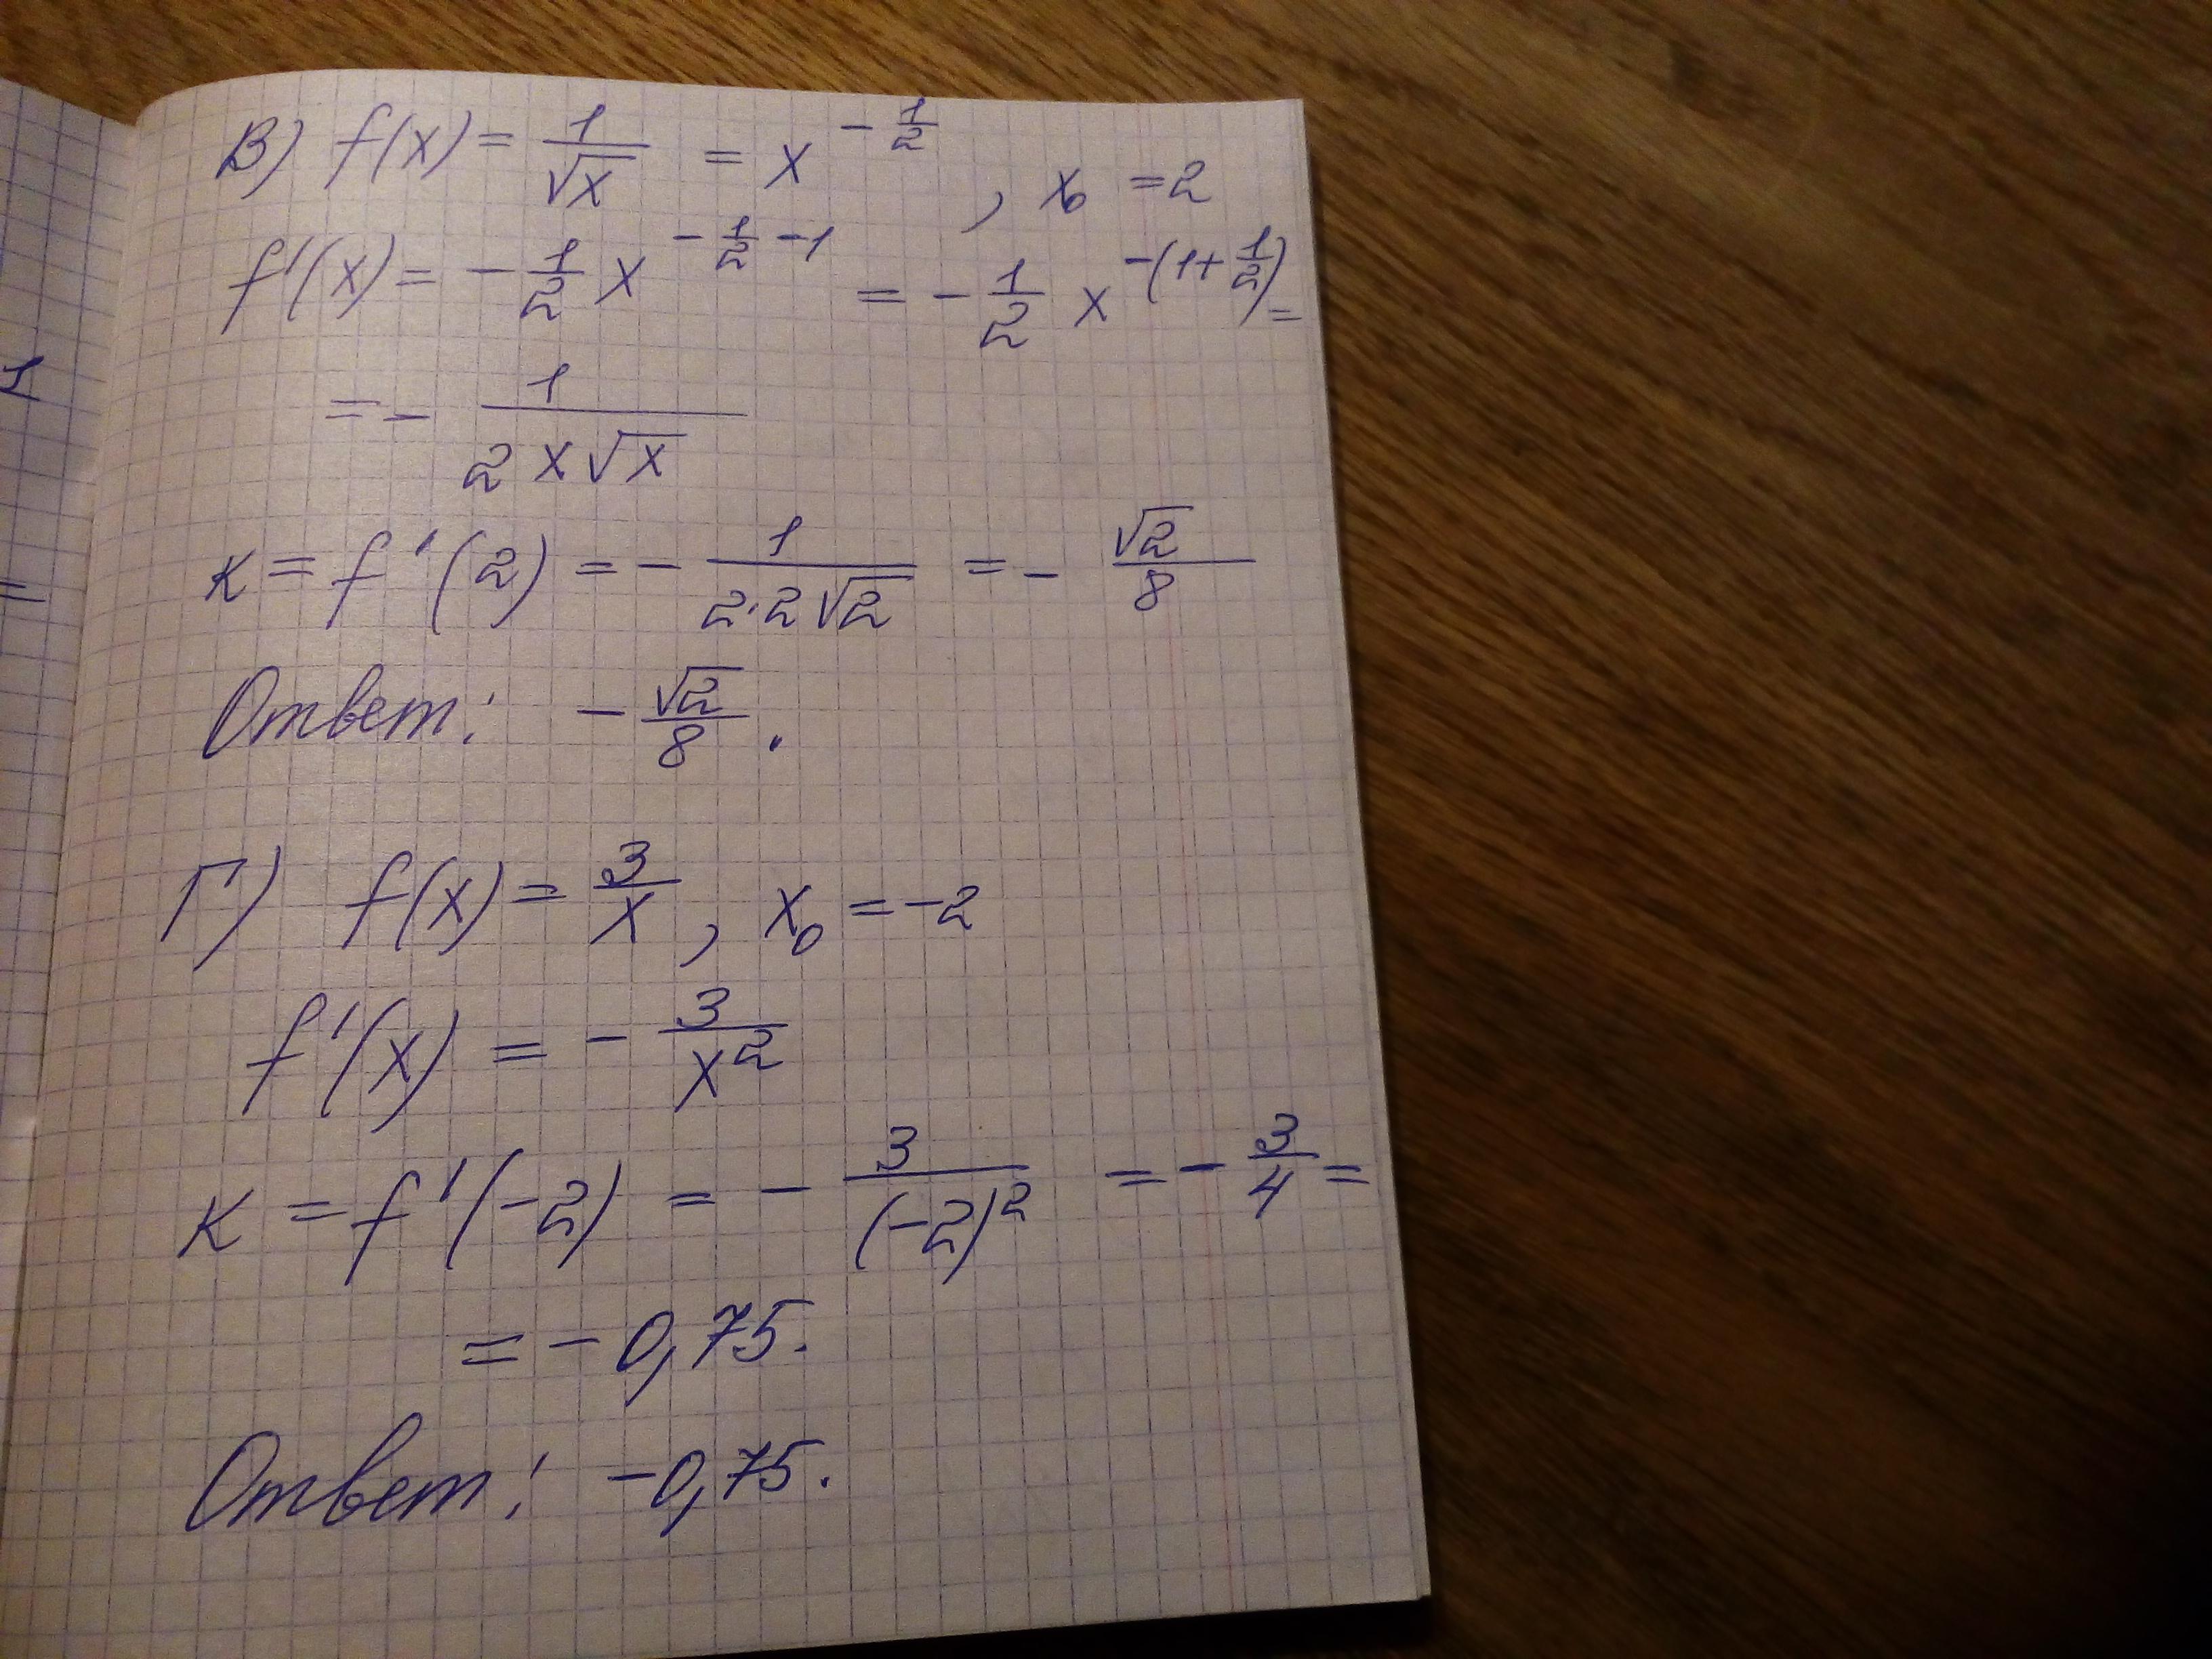 В) f(x) = 1/√x = x^(-1/2), x₀ = 2
f'(x) = - 1/2 x^(-1/2 - 1) = - 1/2 x^(-(1+1/2)) =
= - 1/(2x√x)
к = f'(2) = - 1/(2·2√2) = - √2/8
Ответ: - √2/8.
Г) f(x) = 3/x, x₀ = -2
f'(x) = - 3/x²
к = f'(-2) = - 3/(-2)² = - 3/4 =
= - 0,75.
Ответ: -0,75.
1
=